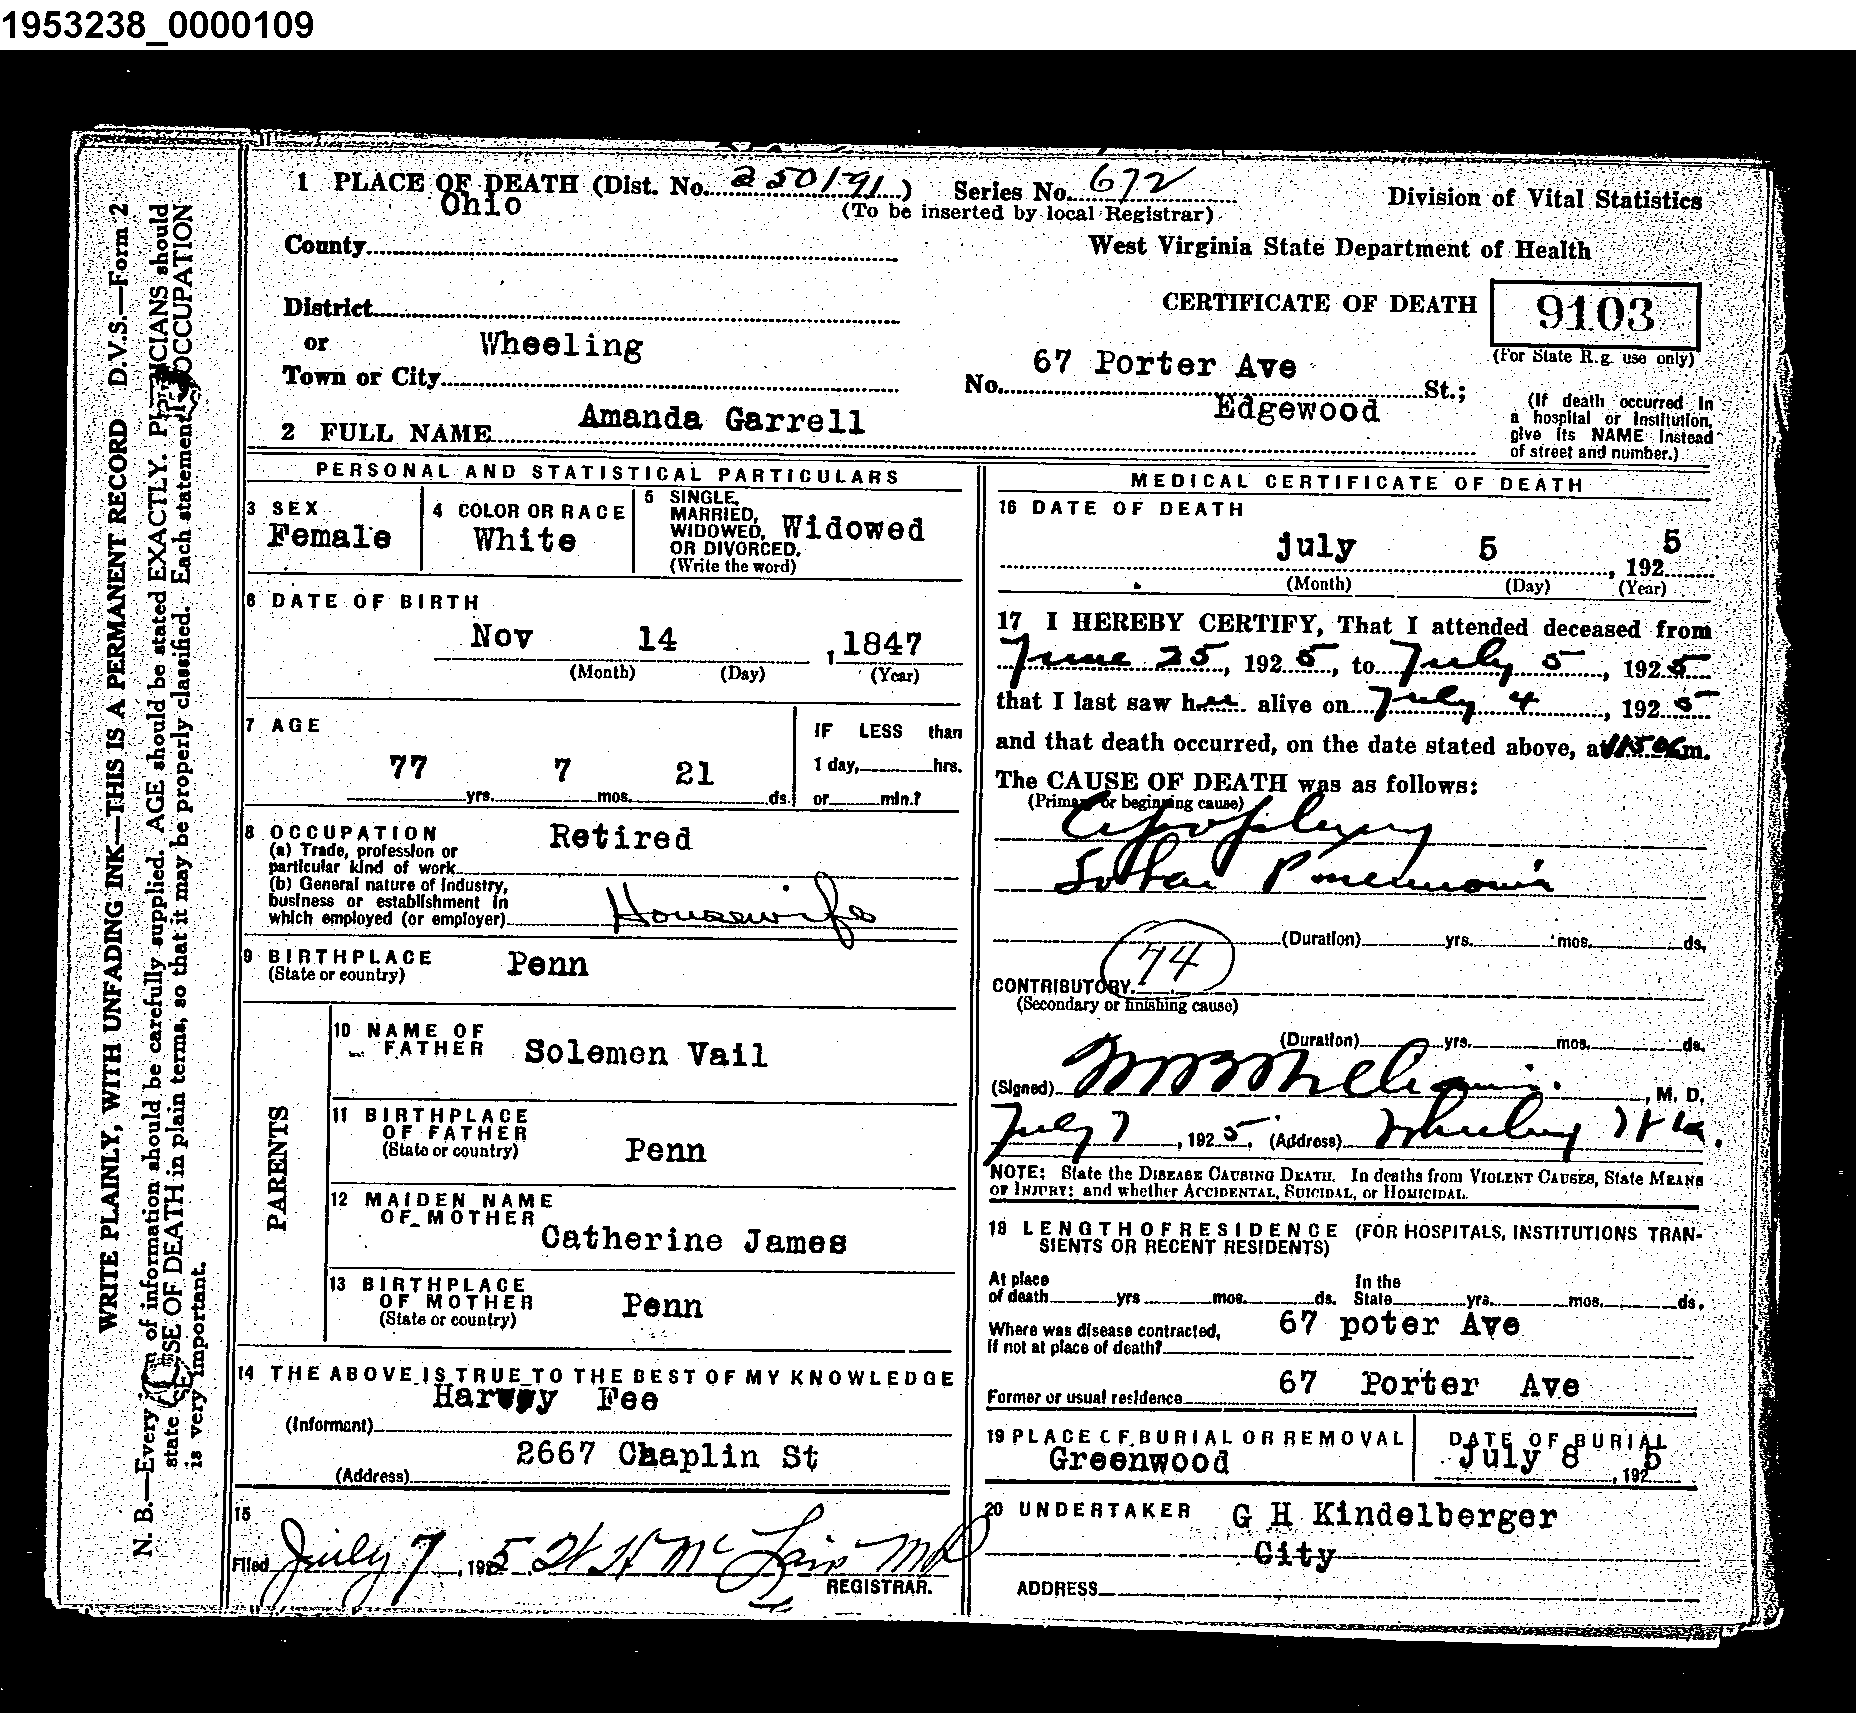 1953238_0000109
WRITE PLAINLY, WITH UNFADING INK—THIS IS A PERMANENT RECORD D.V.S.—Form 2
N. B.—Every item of information should be carefully supplied. AGE should be stated EXACTLY. PHYSICIANS should
state CAUSE OF DEATH in plain terms, so that it may be properly classified. Each statement OCCUPATION
is very important.
1 PLACE OF DEATH (Dist. No. 250191) Series No. 672
(To be inserted by local Registrar)
Division of Vital Statistics
Ohio
County
West Virginia State Department of Health
District
CERTIFICATE OF DEATH 9103
(For State Reg. use only)
or
Town or City Wheeling
No. 67 Porter Ave St.;
Edgewood
(If death occurred in
a hospital or institution,
give its NAME instead
of street and number.)
2 FULL NAME Amanda Garrell
PERSONAL AND STATISTICAL PARTICULARS
3 SEX
Female
4 COLOR OR RACE
White
5 SINGLE,
MARRIED,
WIDOWED, Widowed
OR DIVORCED.
(Write the word)
6 DATE OF BIRTH
Nov 14 , 1847
(Month) (Day) (Year)
7 AGE
77 yrs. 7 mos. 21 ds.
IF LESS than
1 day, hrs.
or min.?
8 OCCUPATION
(a) Trade, profession or
particular kind of work Retired
(b) General nature of Industry,
business or establishment in
which employed (or employer) Housewife
9 BIRTHPLACE
(State or country) Penn
PARENTS
10 NAME OF
FATHER Solemen Vail
11 BIRTHPLACE
OF FATHER
(State or country) Penn
12 MAIDEN NAME
OF MOTHER
Catherine James
13 BIRTHPLACE
OF MOTHER
(State or country) Penn
14 THE ABOVE IS TRUE TO THE BEST OF MY KNOWLEDGE
(Informant) Harvey Fee
(Address) 2667 Chaplin St
15
Filed July 7, 1925 McLain MD
REGISTRAR.
MEDICAL CERTIFICATE OF DEATH
16 DATE OF DEATH
july 5 , 1925
(Month) (Day) (Year)
17 I HEREBY CERTIFY, That I attended deceased from
June 25, 1925, to July 5, 1925
that I last saw her alive on July 4, 1925
and that death occurred, on the date stated above, at m.
The CAUSE OF DEATH was as follows:
(Primary or beginning cause)
Apoplexy
Lobar Pneumonia
(Duration) yrs. mos. ds.
74
CONTRIBUTORY
(Secondary or finishing cause)
(Duration) yrs. mos. ds.
(Signed) , M. D.
July 7, 1925. (Address) Wheeling W Va.
NOTE: State the DISEASE CAUSING DEATH. In deaths from VIOLENT CAUSES, State MEANS
OF INJURY; and whether ACCIDENTAL, SUICIDAL, or HOMICIDAL.
18 LENGTH OF RESIDENCE (FOR HOSPITALS, INSTITUTIONS TRAN-
SIENTS OR RECENT RESIDENTS)
At place
of death yrs. mos. ds.
In the
State yrs. mos. ds.
Where was disease contracted,
If not at place of death? 67 poter Ave
Former or usual residence 67 Porter Ave
19 PLACE OF BURIAL OR REMOVAL
Greenwood
DATE OF BURIAL
July 8 , 1925
20 UNDERTAKER G H Kindelberger
City
ADDRESS